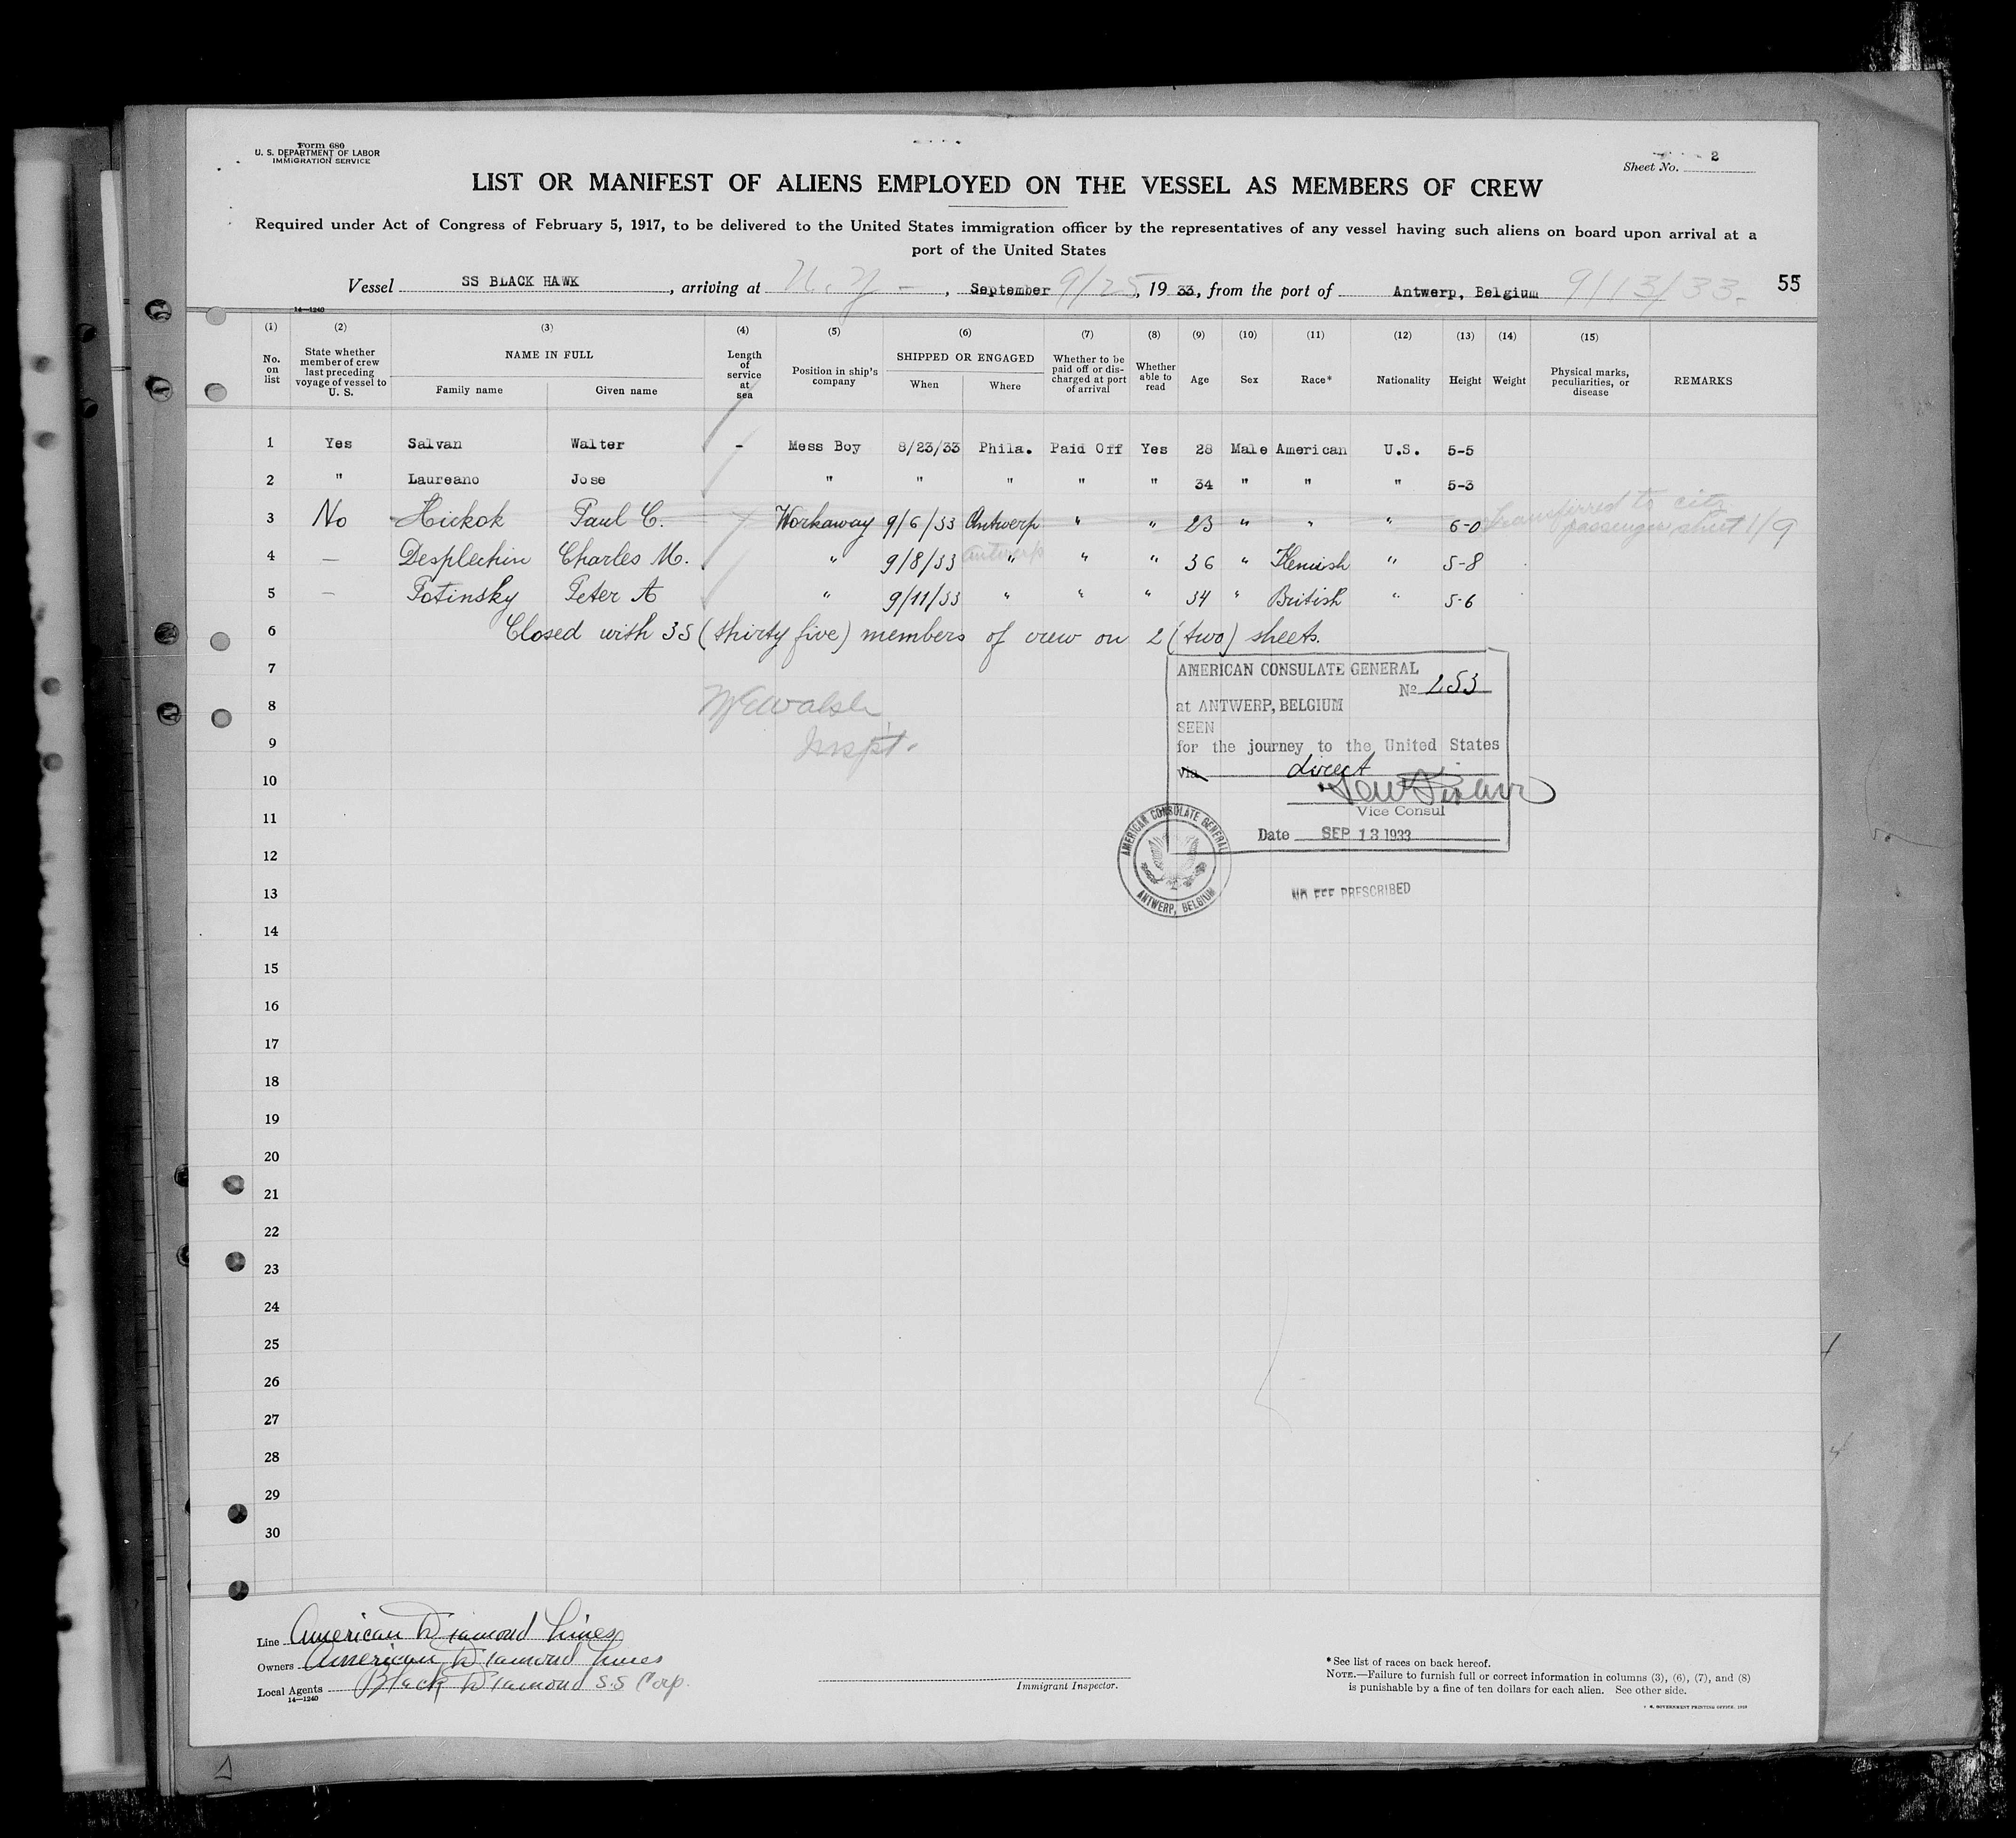 Form 680
U. S. DEPARTMENT OF LABOR
IMMIGRATION SERVICE
Sheet No. 2
LIST OR MANIFEST OF ALIENS EMPLOYED ON THE VESSEL AS MEMBERS OF CREW
Required under Act of Congress of February 5, 1917, to be delivered to the United States immigration officer by the representatives of any vessel having such aliens on board upon arrival at a
port of the United States
Vessel SS BLACK HAWK, arriving at N. Y. -, September 9/25, 1933, from the port of Antwerp, Belgium 9/13/33. 55
14—1240
(1) (2) (3) (4) (5) (6) (7) (8) (9) (10) (11) (12) (13) (14) (15)
No. on list
State whether member of crew last preceding voyage of vessel to U. S.
NAME IN FULL
Family name
Given name
Length of service at sea
Position in ship's company
SHIPPED OR ENGAGED
When
Where
Whether to be paid off or discharged at port of arrival
Whether able to read
Age
Sex
Race*
Nationality
Height
Weight
Physical marks, peculiarities, or disease
REMARKS
1 Yes Salvan Walter - Mess Boy 8/23/33 Phila. Paid Off Yes 28 Male American U.S. 5-5
2 " Laureano Jose " " " " " 34 " " " 5-3
3 No Hickok Paul C. Workaway 9/6/33 Antwerp " " 23 " " " 6-0 transferred to citz passengers sheet 1/9
4 — Desplechin Charles M. " 9/8/33 Antwerp " " " 36 " Flemish " 5-8
5 — Potinsky Peter A " 9/11/33 " " " 34 " British " 5-6
6 Closed with 35 (thirty five) members of crew on 2 (two) sheets.
7
8
9
10
11
12
13
14
15
16
17
18
19
20
21
22
23
24
25
26
27
28
29
30
Walsh
Inspt.
AMERICAN CONSULATE GENERAL
No 253
at ANTWERP, BELGIUM
SEEN
for the journey to the United States
via direct
Vice Consul
Date SEP 13 1933
AMERICAN CONSULATE GENERAL
ANTWERP, BELGIUM
NO FEE PRESCRIBED
Line American Diamond Lines
Owners American Diamond Lines
Local Agents Black Diamond S.S Corp.
14—1240
Immigrant Inspector.
* See list of races on back hereof.
NOTE.—Failure to furnish full or correct information in columns (3), (6), (7), and (8)
is punishable by a fine of ten dollars for each alien. See other side.